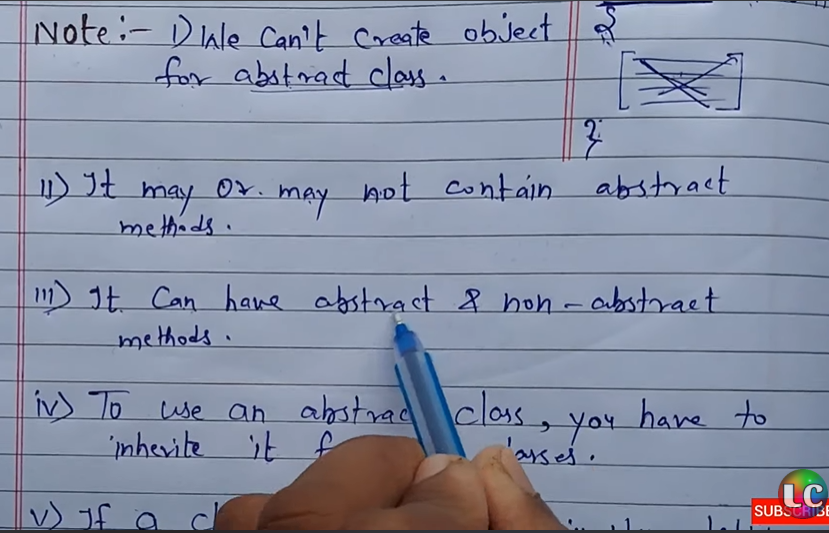 Note:- I) We can't create object
for abstract class.
II) It may or may not contain abstract
methods.
III) It can have abstract & non-abstract
methods.
iv) To use an abstract class, you have to
inherite it
v) If a
LC
SUBSCRIBE